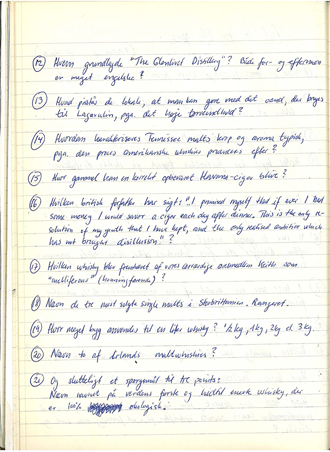 (12) Hvem grundlagde "The Glenlivet Distillery"? Både for- og efternavn
er meget engelske?
(13) Hvad påstås de lokale, at man kan gøre med det vand, der bruges
til Lagavulin, pga. det høje tørveindhold?
(14) Hvordan karakteriseres Tennessee malts krop og aroma typisk,
pga. den proces amerikanske whiskies produceres efter?
(15) Hvor gammel kan en korrekt opbevaret Havanna-cigar blive?
(16) Hvilken britisk forfatter har sagt: "I promised myself that if ever I had
some money I would savor a cigar each day after dinner. This is the only re-
solution of my youth that I have kept, and the only realized ambition which
has not brought disillusion."?
(17) Hvilken whisky blev fremhævet af vores ærværdige animalien Keith som
"melliferous" (honningfarvet)?
(18) Nævn de tre mest solgte single malts i Storbritannien. Rangeret.
(19) Hvor meget byg anvendes til en liter whisky? ½ kg, 1 kg, 2 kg el. 3 kg.
(20) Nævn to af Irlands maltwhiskies?
(21) Og sluttelig et spørgsmål til tre points:
Nævn navnet på verdens første og hidtil eneste whisky, der
er 100% økologisk.